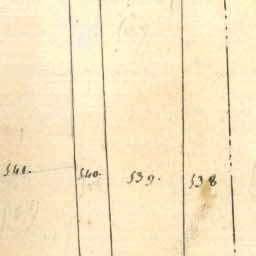 541. 540. 539. 538